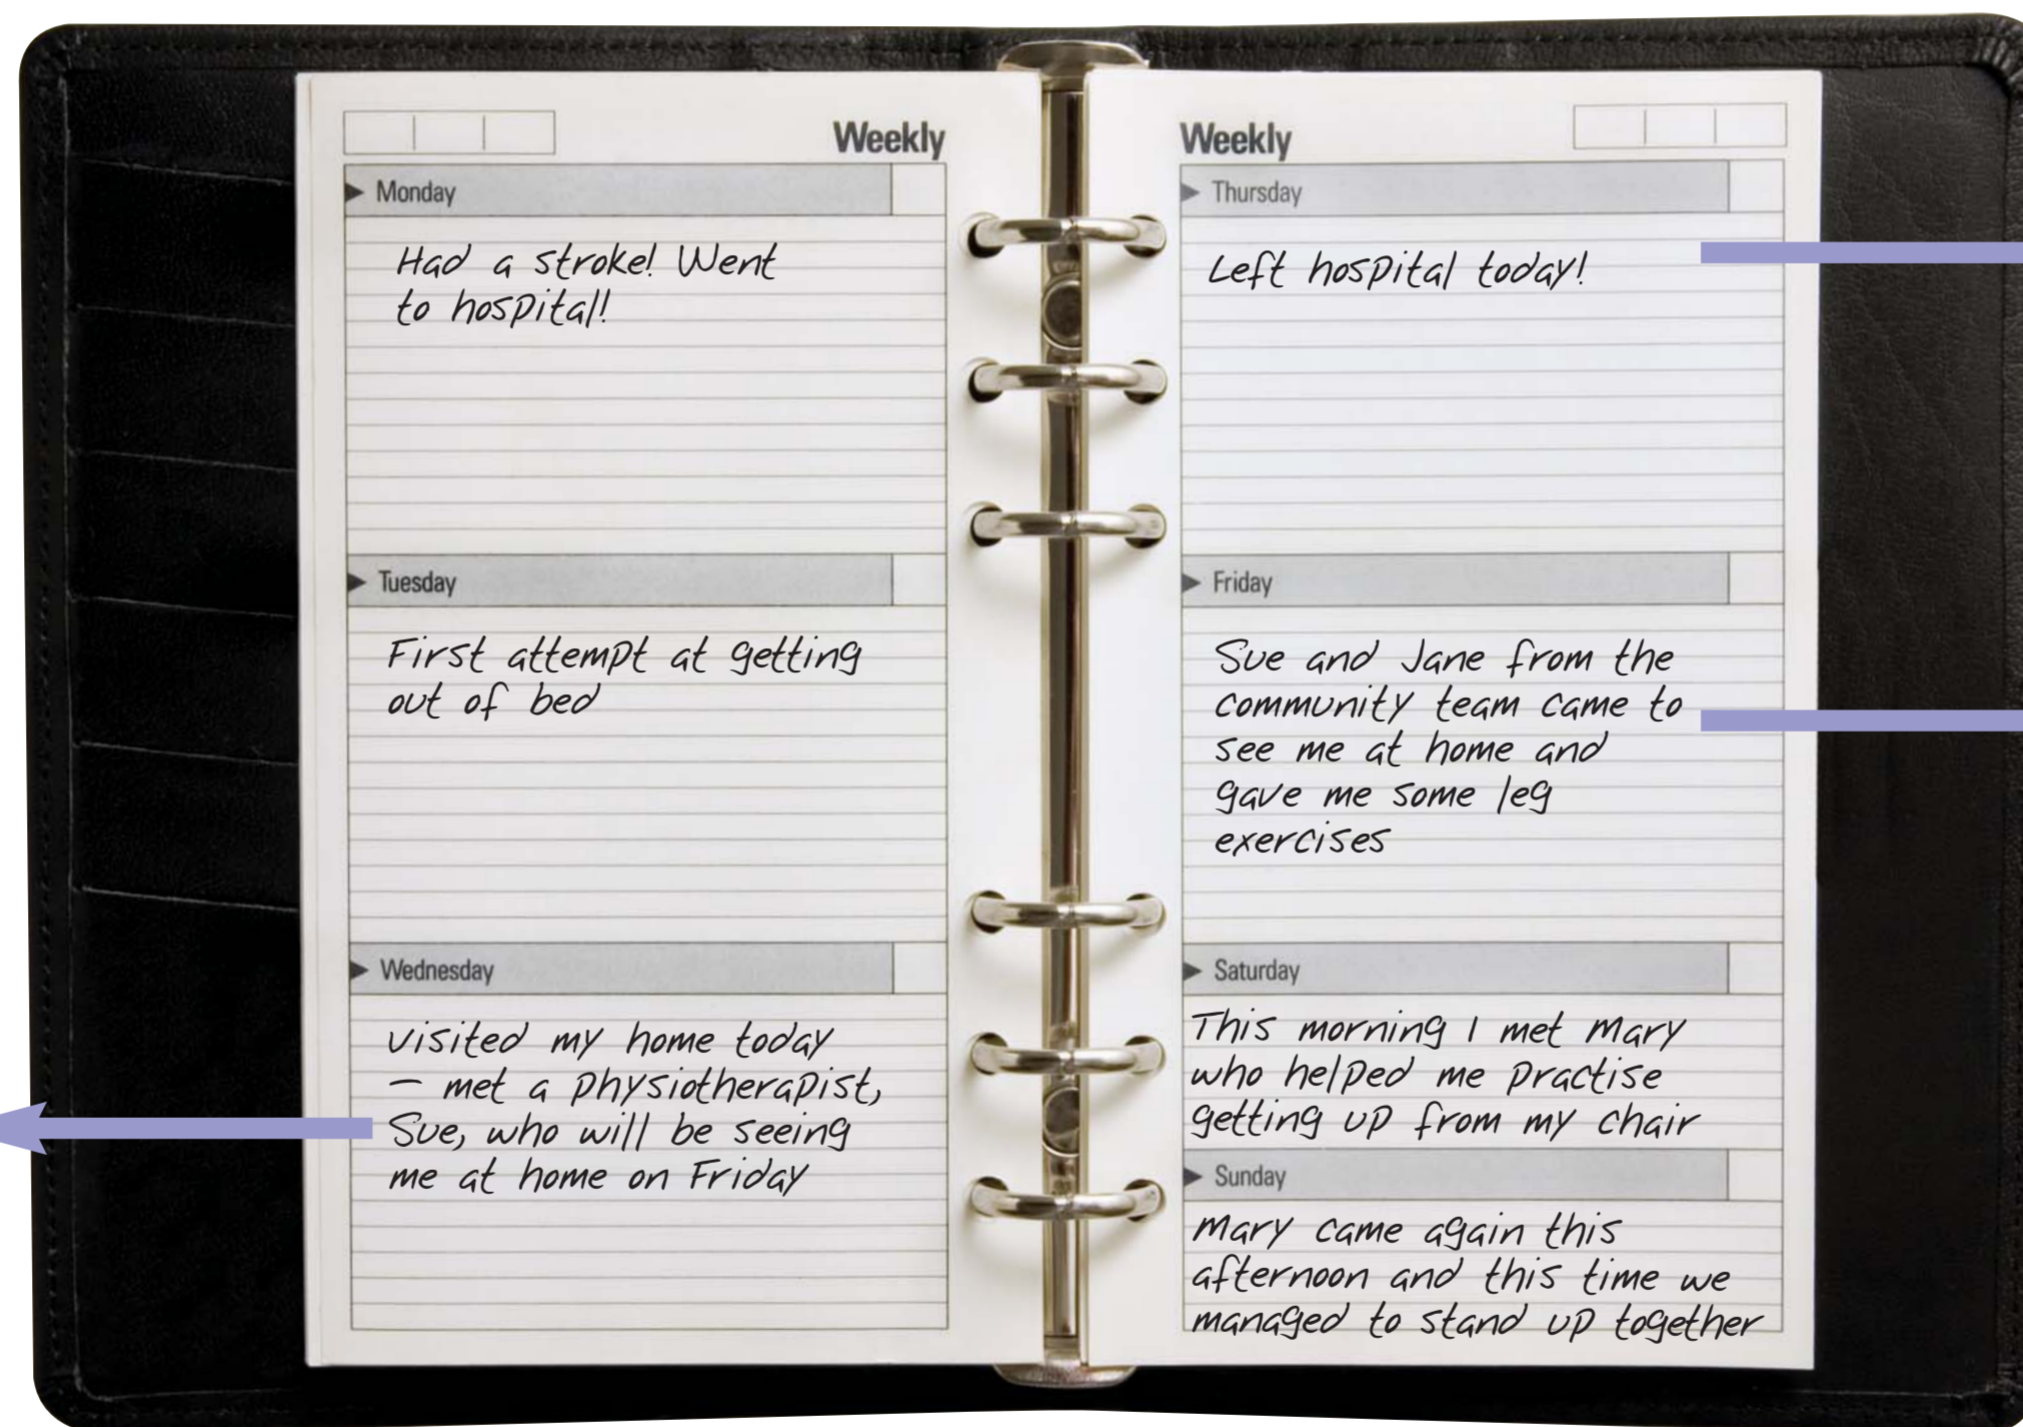 Weekly
Monday
Had a stroke! Went
to hospital!
Tuesday
First attempt at getting
out of bed
Wednesday
Visited my home today
– met a physiotherapist,
Sue, who will be seeing
me at home on Friday
Weekly
Thursday
Left hospital today!
Friday
Sue and Jane from the
community team came to
see me at home and
gave me some leg
exercises
Saturday
This morning I met Mary
who helped me practise
getting up from my chair
Sunday
Mary came again this
afternoon and this time we
managed to stand up together